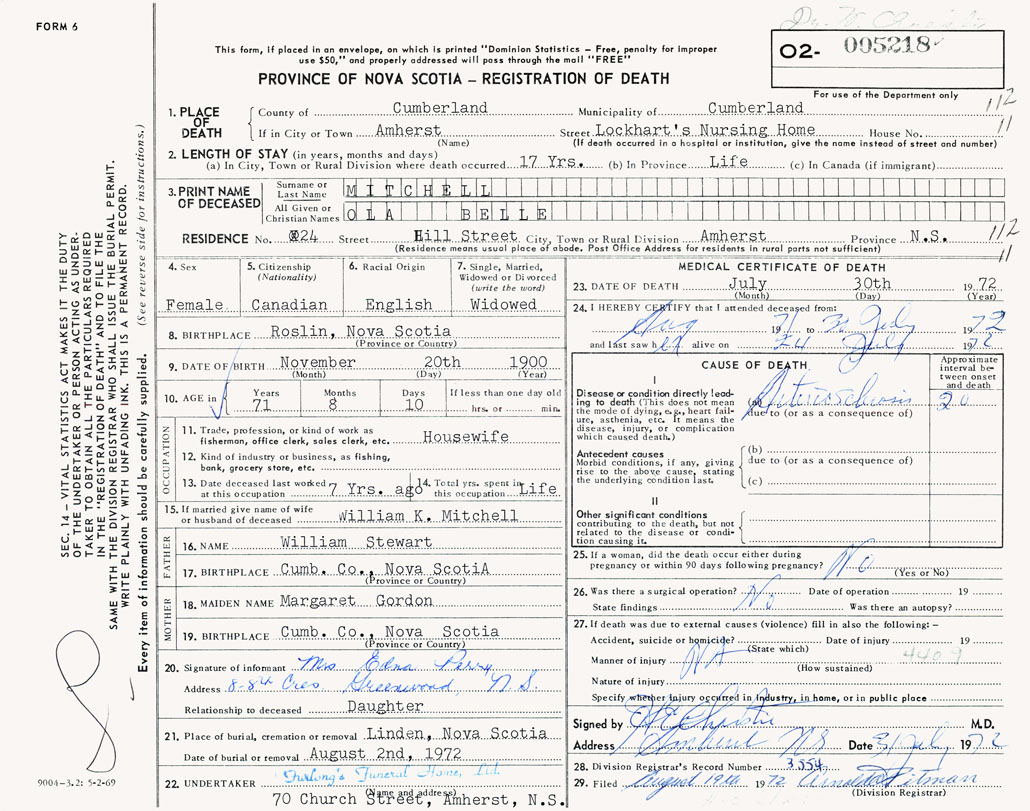 FORM 6
This form, if placed in an envelope, on which is printed "Dominion Statistics – Free, penalty for improper
use $50," and properly addressed will pass through the mail "FREE"
PROVINCE OF NOVA SCOTIA – REGISTRATION OF DEATH
02- 005218
For use of the Department only
112
11
1. PLACE OF DEATH County of Cumberland Municipality of Cumberland
If in City or Town Amherst Street Lockhart's Nursing Home House No.
(Name) (If death occurred in a hospital or institution, give the name instead of street and number)
2. LENGTH OF STAY (in years, months and days)
(a) In City, Town or Rural Division where death occurred 17 Yrs. (b) In Province Life (c) In Canada (if immigrant)
3. PRINT NAME OF DECEASED Surname or Last Name MITCHELL
All Given or Christian Names OLA BELLE
RESIDENCE No. 24 Street Hill Street City, Town or Rural Division Amherst Province N.S.
(Residence means usual place of abode. Post Office Address for residents in rural parts not sufficient)
112
11
4. Sex
Female
5. Citizenship (Nationality)
Canadian
6. Racial Origin
English
7. Single, Married, Widowed or Divorced (write the word)
Widowed
8. BIRTHPLACE Roslin, Nova Scotia
(Province or Country)
9. DATE OF BIRTH November 20th 1900
(Month) (Day) (Year)
10. AGE in Years Months Days If less than one day old
71 8 10 hrs. or min.
OCCUPATION
11. Trade, profession, or kind of work as
fisherman, office clerk, sales clerk, etc. Housewife
12. Kind of industry or business, as fishing,
bank, grocery store, etc.
13. Date deceased last worked at this occupation 7 Yrs. ago 14. Total yrs. spent in this occupation Life
15. If married give name of wife
or husband of deceased William K. Mitchell
FATHER
16. NAME William Stewart
17. BIRTHPLACE Cumb. Co., Nova ScotiA
(Province or Country)
MOTHER
18. MAIDEN NAME Margaret Gordon
19. BIRTHPLACE Cumb. Co., Nova Scotia
(Province or Country)
20. Signature of informant Mrs Edna Perry
Address 8-84 Cres Greenwood, N.S.
Relationship to deceased Daughter
21. Place of burial, cremation or removal Linden, Nova Scotia
Date of burial or removal August 2nd, 1972
22. UNDERTAKER Furlong's Funeral Home, Ltd.
(Name and address)
70 Church Street, Amherst, N.S.
MEDICAL CERTIFICATE OF DEATH
23. DATE OF DEATH July 30th 1972
(Month) (Day) (Year)
24. I HEREBY CERTIFY that I attended deceased from:
Aug 1971 to 30 July 1972
and last saw her alive on 24 July 1972
CAUSE OF DEATH
Approximate interval between onset and death
I
Disease or condition directly leading to death (This does not mean the mode of dying, e.g., heart failure, asthenia, etc. It means the disease, injury, or complication which caused death.)
(a) Arteriosclerosis 20
due to (or as a consequence of)
Antecedent causes
Morbid conditions, if any, giving rise to the above cause, stating the underlying condition last.
(b)
due to (or as a consequence of)
(c)
II
Other significant conditions
contributing to the death, but not related to the disease or condition causing it.
25. If a woman, did the death occur either during
pregnancy or within 90 days following pregnancy? No
(Yes or No)
26. Was there a surgical operation? No Date of operation 19
State findings Was there an autopsy?
27. If death was due to external causes (violence) fill in also the following:–
Accident, suicide or homicide? Date of injury 19
(State which) 4409
Manner of injury NA
(How sustained)
Nature of injury
Specify whether injury occurred in industry, in home, or in public place
Signed by Christie M.D.
Address Amherst NS Date 31 July 1972
28. Division Registrar's Record Number 3554
29. Filed August 19th 1972 Arnold Pitman
(Division Registrar)
SEC. 14 – VITAL STATISTICS ACT MAKES IT THE DUTY
OF THE UNDERTAKER OR PERSON ACTING AS UNDER-
TAKER TO OBTAIN ALL THE PARTICULARS REQUIRED
IN THE "REGISTRATION OF DEATH" AND TO FILE THE
SAME WITH THE DIVISION REGISTRAR WHO SHALL ISSUE THE BURIAL PERMIT.
WRITE PLAINLY WITH UNFADING INK. THIS IS A PERMANENT RECORD.
Every item of information should be carefully supplied. (See reverse side for instructions.)
9004-3.2: 5-2-69